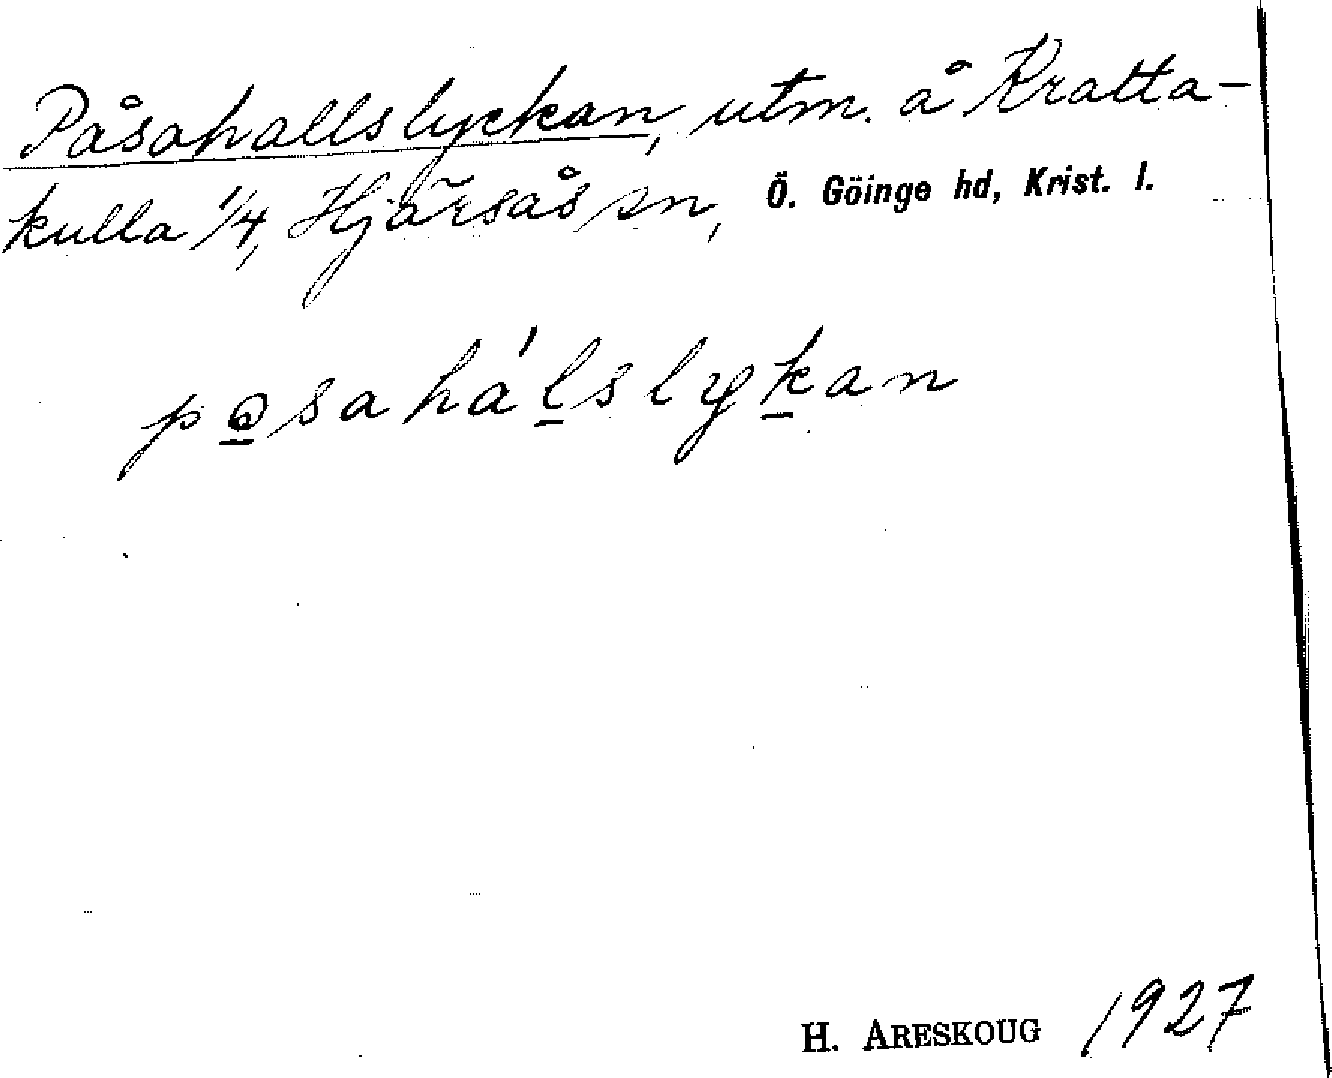 Påsahallslyckan, utm. å Kratta-
kulla 1/4, Hjärsås sn, Ö. Göinge hd, Krist. l.
pɵsahálslykan
H. ARESKOUG 1927